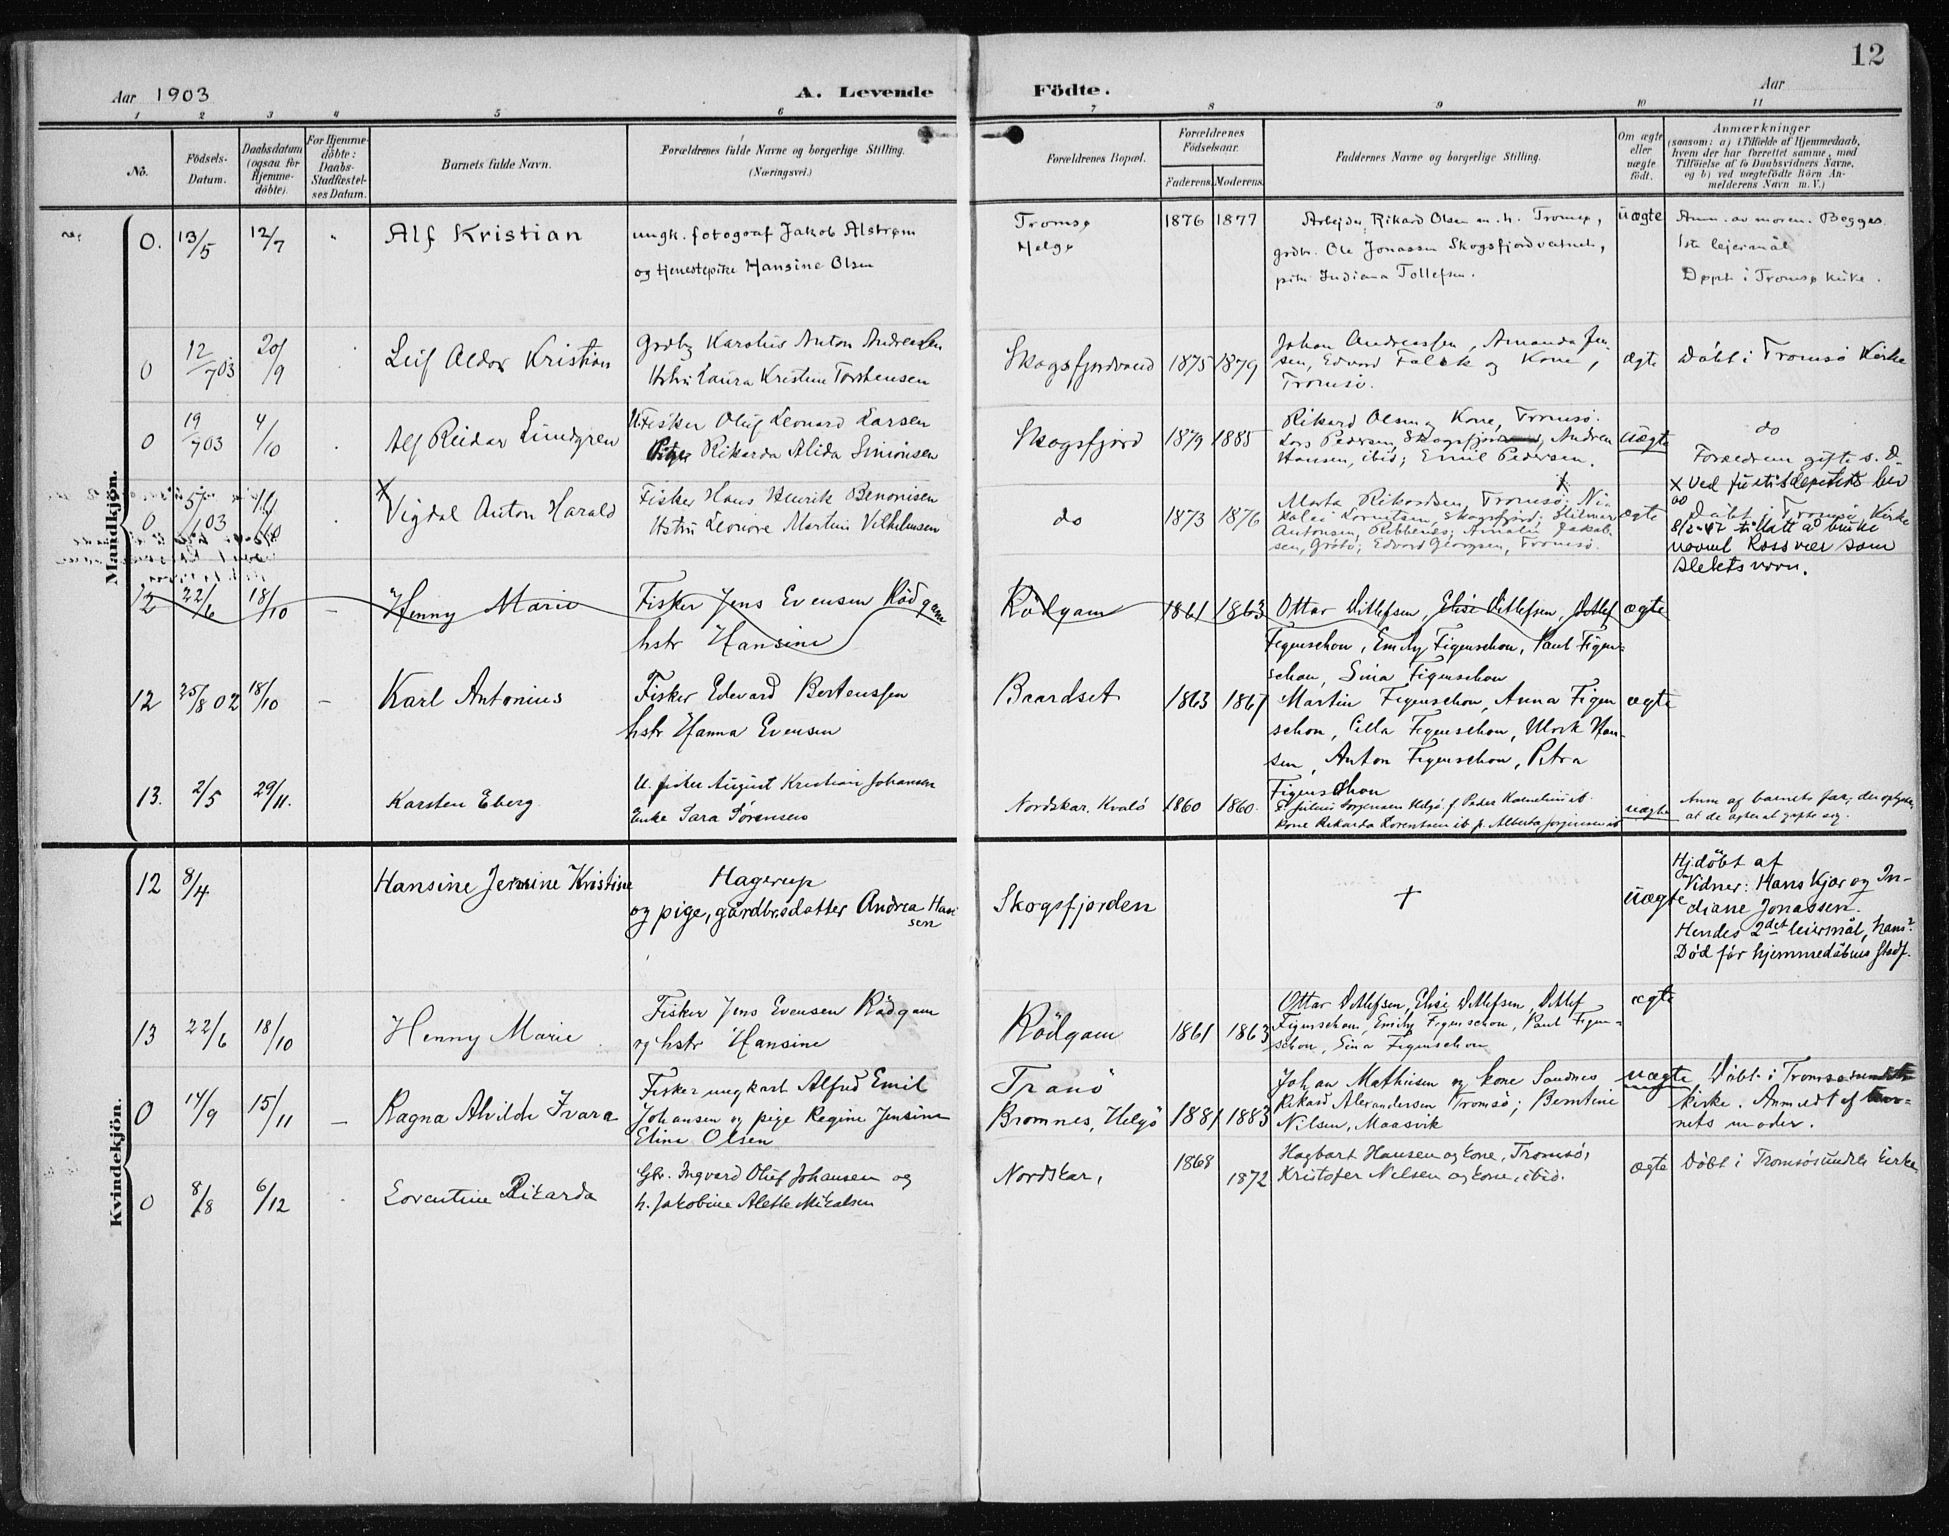 12
Aar 1903
A. Levende Födte.
Aar
1 2 3 4 5 6 7 8 9 10 11
No.
Födsels-Datum.
Daabsdatum (ogsaa for Hjemme-döbte).
For Hjemme-döbte: Daabs-Stadfæstel-ses Datum.
Barnets fulde Navn.
Forældrenes fulde Navne og borgerlige Stilling. (Næringsvei.)
Forældrenes Bopæl.
Forældrenes Födselsaar.
Faderens. Moderens.
Faddernes Navne og borgerlige Stilling.
Om ægte eller uægte födt.
Anmærkninger
(saasom: a) i Tilfælde af Hjemmedaab, hvem der har forrettet samme, med Tilföielse af to Daabsvidners Navne, og b) ved uægtefödte Börn An-melderens Navn m. V.)
Mandkjön.
0. 13/5 12/7 " Alf Kristian
ungk. fotograf Jakob Alstrøm
og tjenestepike Hansine Olsen
Tromsø
Helgø
1876 1877
Arbejder Rikard Olsen m. h. Tromsø,
grdbr. Ole Jonassen Skogsfjordvatnet,
pike Indiana Tollefsen.
uægte
Anm. av moren. Begges
1ste lejermål
Døpt i Tromsø kirke.
0 12/7 03 20/9 Leif Aldor Kristian
Grdbr Karolius Anton Andreassen
Hstru Laura Kristine Torstensen
Skogsfjordvand 1875 1879
Johan Andreassen, Amanda Jen-
sen, Edvard Falck og Kone,
Tromsö.
ægte Döbt i Tromsö Kirke
0 19/7 03 4/10 Alf Reidar Lundgren
U. Fisker Oluf Leonard Larsen
Pige Rikarda Alida Simonsen
Skogsfjord 1879 1885
Rikard Olsen og Kone, Tromsö.
Lars Pedersen, Skogsfjord, Andrea
Hansen, ibid; Emil Pedersen.
uægte do
Forældrene gifte s. D.
0 5/ 03 /10 x Vigdal Anton Harald
Fisker Hans Henrik Benonisen
Hstru Leonore Martine Vilhelmsen
do 1873 1876
Marta Rikardsen, Tromsö; Ni-
kolai Lorentsen, Skogsfjord; Hilmar
Antonsen, Ribbenes; Amalie Jakob-
sen, Grötö; Edvard Georgsen, Tromsö.
ægte
x Ved justisdepartets brev
Döbt i Tromsö Kirke
8/2-47 tillatt å bruke
navnet Rossvær som
slektsnavn.
12 22/6 18/10 - Henny Marie
Fisker Jens Evensen Rödgam
hstr Hansine
Rödgam 1861 1863
Ottar Ditlefsen, Elise Ditlefsen, Ditlef
Figenschou, Emily Figenschou, Paul Figen-
schou, Sina Figenschou
ægte
12 25/8 02 18/10 - Karl Antonius
Fisker Edvard Berteussen
hstr Hanna Evensen
Baardset 1863 1867
Martin Figenschou, Anna Figen
schou, Cilla Figenschou, Ulrik Han-
sen, Anton Figenschou, Petra
Figenschou
ægte
13. 2/5 29/11. Karsten Eberg
U. fisker August Kristian Johansen
Enke Sara Sørensen
Nordskar. Kvalö 1860 1860.
F. Julius Jørgensen Helgö. f. Peder Kornelius ib.
Kone Rikarda Lorentsen ib. p. Alberta Jørgensen ib
uægte
Anm af barnets far, der oplyser,
at de agter at gifte seg.
Kvindekjön.
12 8/4 Hansine Jensine Kristine
Hagerup
og pige, gårdbrsdatter Andrea Han
sen
Skogsfjorden
+
uægte
Hjdöbt af
Vidner: Hans Kjær og In-
diane Jonassen.
Hendes 2det leiermål, hans?
Död för hjemmedåbens stadf.
13 22/6 18/10 Henny Marie
Fisker Jens Evensen Rödgam
og hstr Hansine
Rödgam 1861 1863
Ottar Ditlefsen, Elise Ditlefsen, Ditlef
Figenschou, Emily Figenschou, Paul Figen-
schou, Sina Figenschou
ægte
0 14/9 15/11 - Ragna Alvilde Ivara
Fisker ungkarl Alfred Emil
Johansen og pige Regine Jensine
Eline Olsen
Tranö
Bromnes, Helgö 1881 1883
Johan Mathisen og kone Sandnes
Rikard Alexandersen Tromsö; Berntine
Nilsen, Maasvik
uægte
Döbt i Tromsösundets
kirke. Anmeldt af bar-
nets moder.
0 8/8 6/12 Lorentine Rikarda
Gbr. Ingvard Oluf Johansen og
h. Jakobine Alette Mikalsen
Nordskar, 1868 1872
Hagbart Hansen og kone, Tromsö,
Kristofer Nilsen og kone, ibid.
ægte Döbt i Tromsösundets kirke